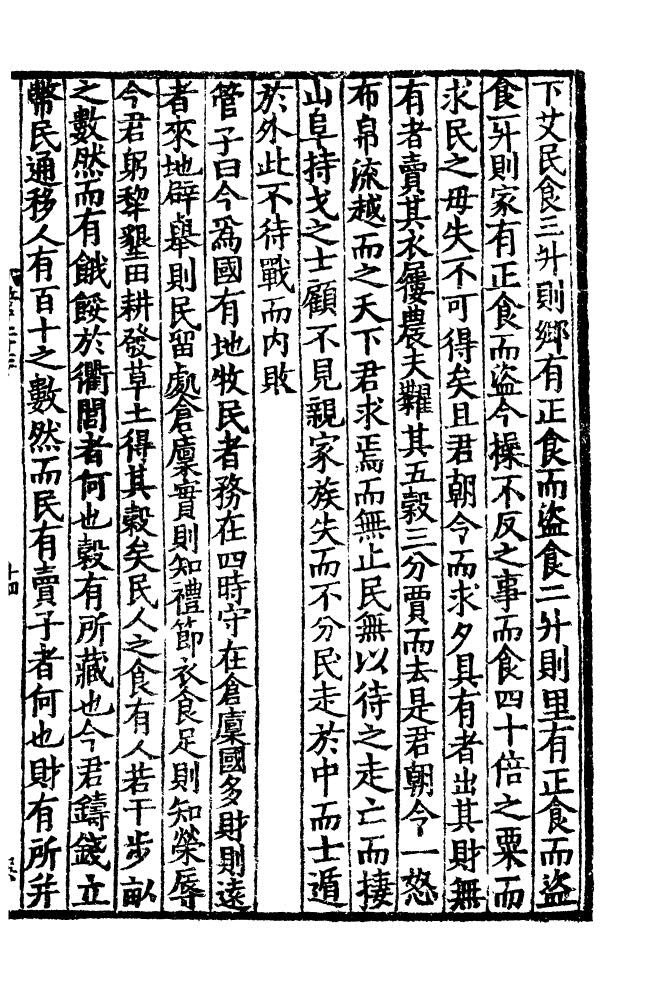 下艾民食三升則鄉有正食而盜食二升則里有正食而盜
食一升則家有正食而盜今操不反之事而食四十倍之粟而
求民之毋失不可得矣且君朝令而求夕具有者出其財無
有者賣其衣屨農夫糶其五穀三分賈而去是君朝令一怒
布帛流越而之天下君求焉而無止民無以待之走亡而捿
山阜持戈之士顧不見親家族失而不分民走於中而士遁
於外此不待戰而內敗
管子曰今爲國有地牧民者務在四時守在倉廩國多財則遠
者來地辟舉則民留處倉廩實則知禮節衣食足則知榮辱
今君躬犂墾田耕發草土得其穀矣民人之食有人若干步畝
之數然而有餓餒於衢閭者何也穀有所藏也今君鑄錢立
幣民通移人有百十之數然而民有賣子者何也財有所并
十四